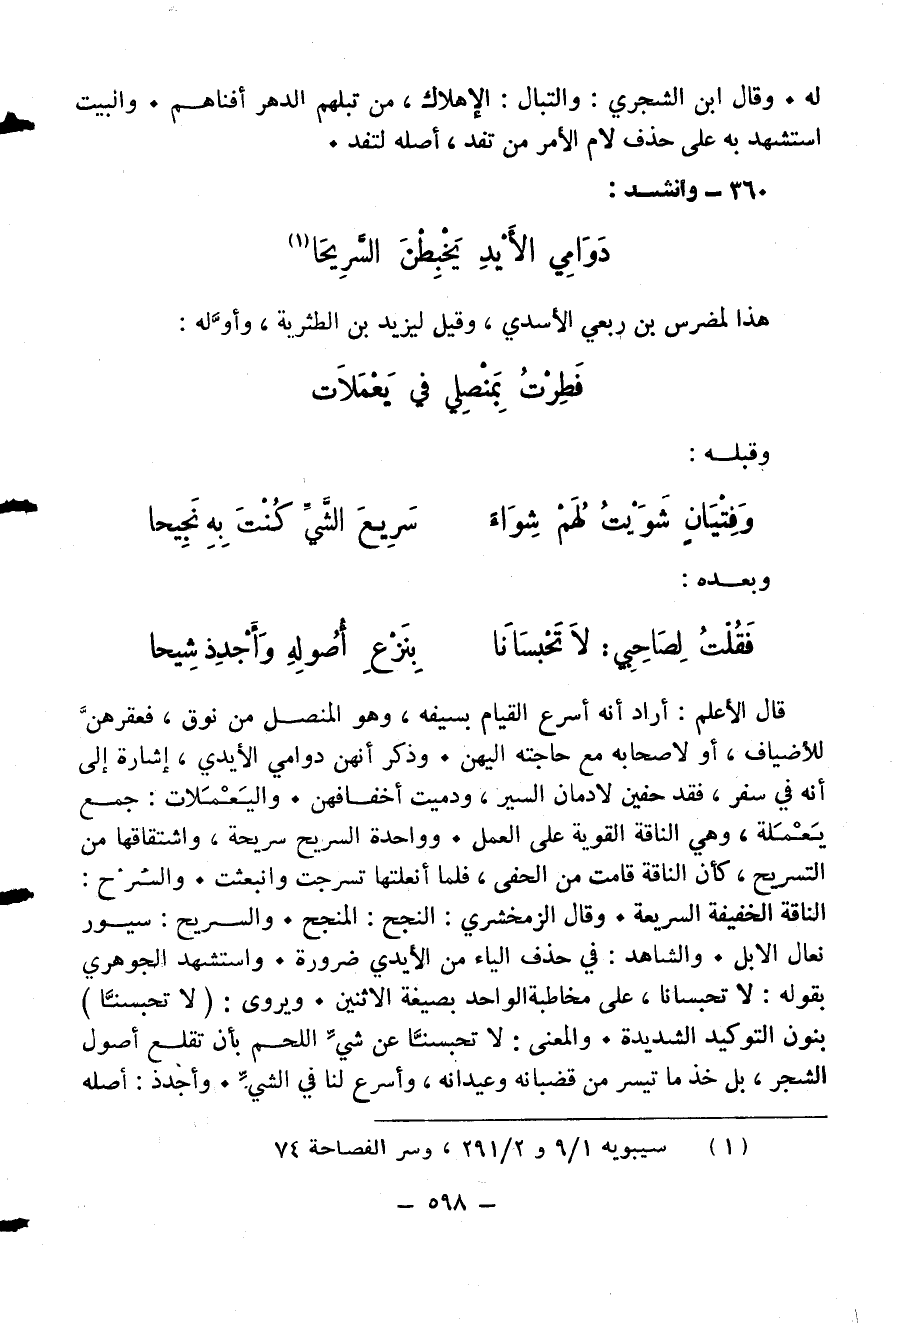 له ٠ وقال ابن الشجري : والتبال : الإهلاك ، من تبلهم الدهر أفناهـم ٠ والبيت
استشهد به على حذف لام الأمر من تفد ، أصله لتفد ٠
٣٦٠ ـ وانشـد :
دَوَامِي الأَيْدِ يَخْبِطْنَ السَّرِيحَا(١)
هذا لمضرس بن ربعي الأسدي ، وقيل ليزيد بن الطثرية ، وأوَّله :
فَطِرْتُ بِمَنْصِلِي في يَعْمَلَات
وقبلـه :
وَفِتْيَانٍ شَوَيْتُ لَهُمْ شِوَاءَ سَرِيعَ الشَّيِّ كُنْتَ بِهِ نَجِيحا
وبعـده :
فَقُلْتُ لِصَاحِبِي : لاَ تَحْبِسَانَا بِنَزْعِ أُصُولِهِ وَأَجْدِذ شِيحا
قال الأعلم : أراد أنه أسرع القيام بسيفه ، وهو المنصـل من نوق ، فعقرهنَّ
للأضياف ، أو لاصحابه مع حاجته اليهن ٠ وذكر أنهن دوامي الأيدي ، إشارة إلى
أنه في سفر ، فقد حفين لادمان السير ، ودميت أخفـافهن ٠ واليَعْمَلات : جمـع
يَعْمَلة ، وهي الناقة القوية على العمل ٠ وواحدة السريح سريحة ، واشتقاقها من
التسريح ، كأن الناقة قامت من الحفى ، فلما أنعلتها تسرجت وانبعثت ٠ والسُرُح :
الناقة الخفيفة السريعة ٠ وقال الزمخشري : النجح : المنجح ٠ والسـريح : سيـور
نعال الابل ٠ والشاهد : في حذف الياء من الأيدي ضرورة ٠ واستشهد الجوهري
بقوله : لا تحبسانا ، على مخاطبةالواحد بصيغة الاثنين ٠ ويروى : ( لا تحبسنَّا )
بنون التوكيد الشديدة ٠ والمعنى : لا تحبسنَّا عن شيِّ اللحـم بأن تقلـع أصول
الشجر ، بل خذ ما تيسر من قضبانه وعيدانه ، وأسرع لنا في الشيِّ ٠ وأجدذ : أصله
(١) سيبويه ٩/١ و ٢٩١/٢ ، وسر الفصاحة ٧٤
ـ ٥٩٨ ـ